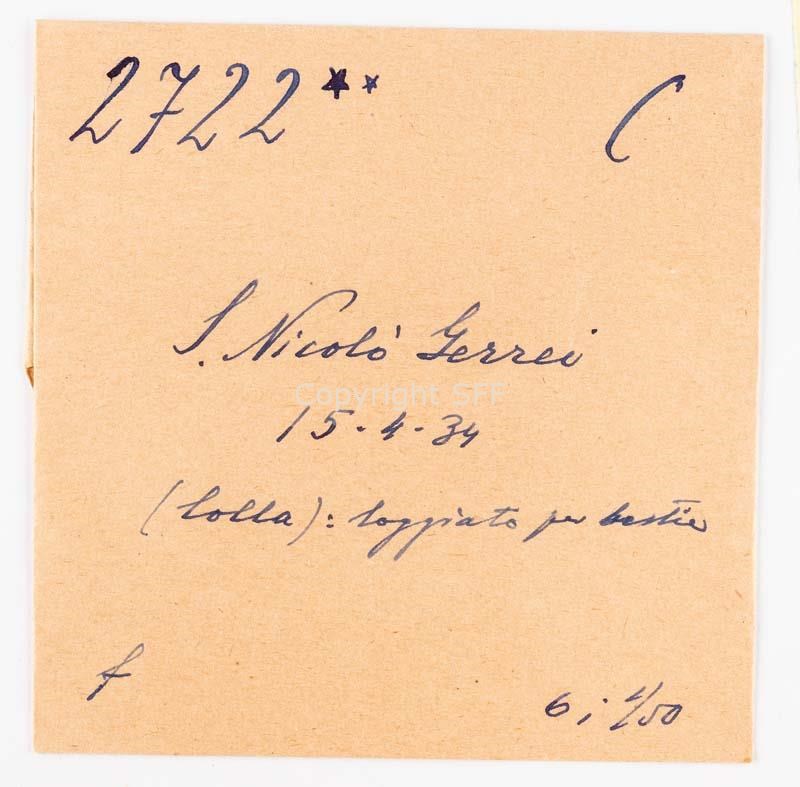 2722** C
S. Nicolò Gerrei
Copyright SFF
15-4-34
(lolla): loggiato per bestie
f
6 i 1/50